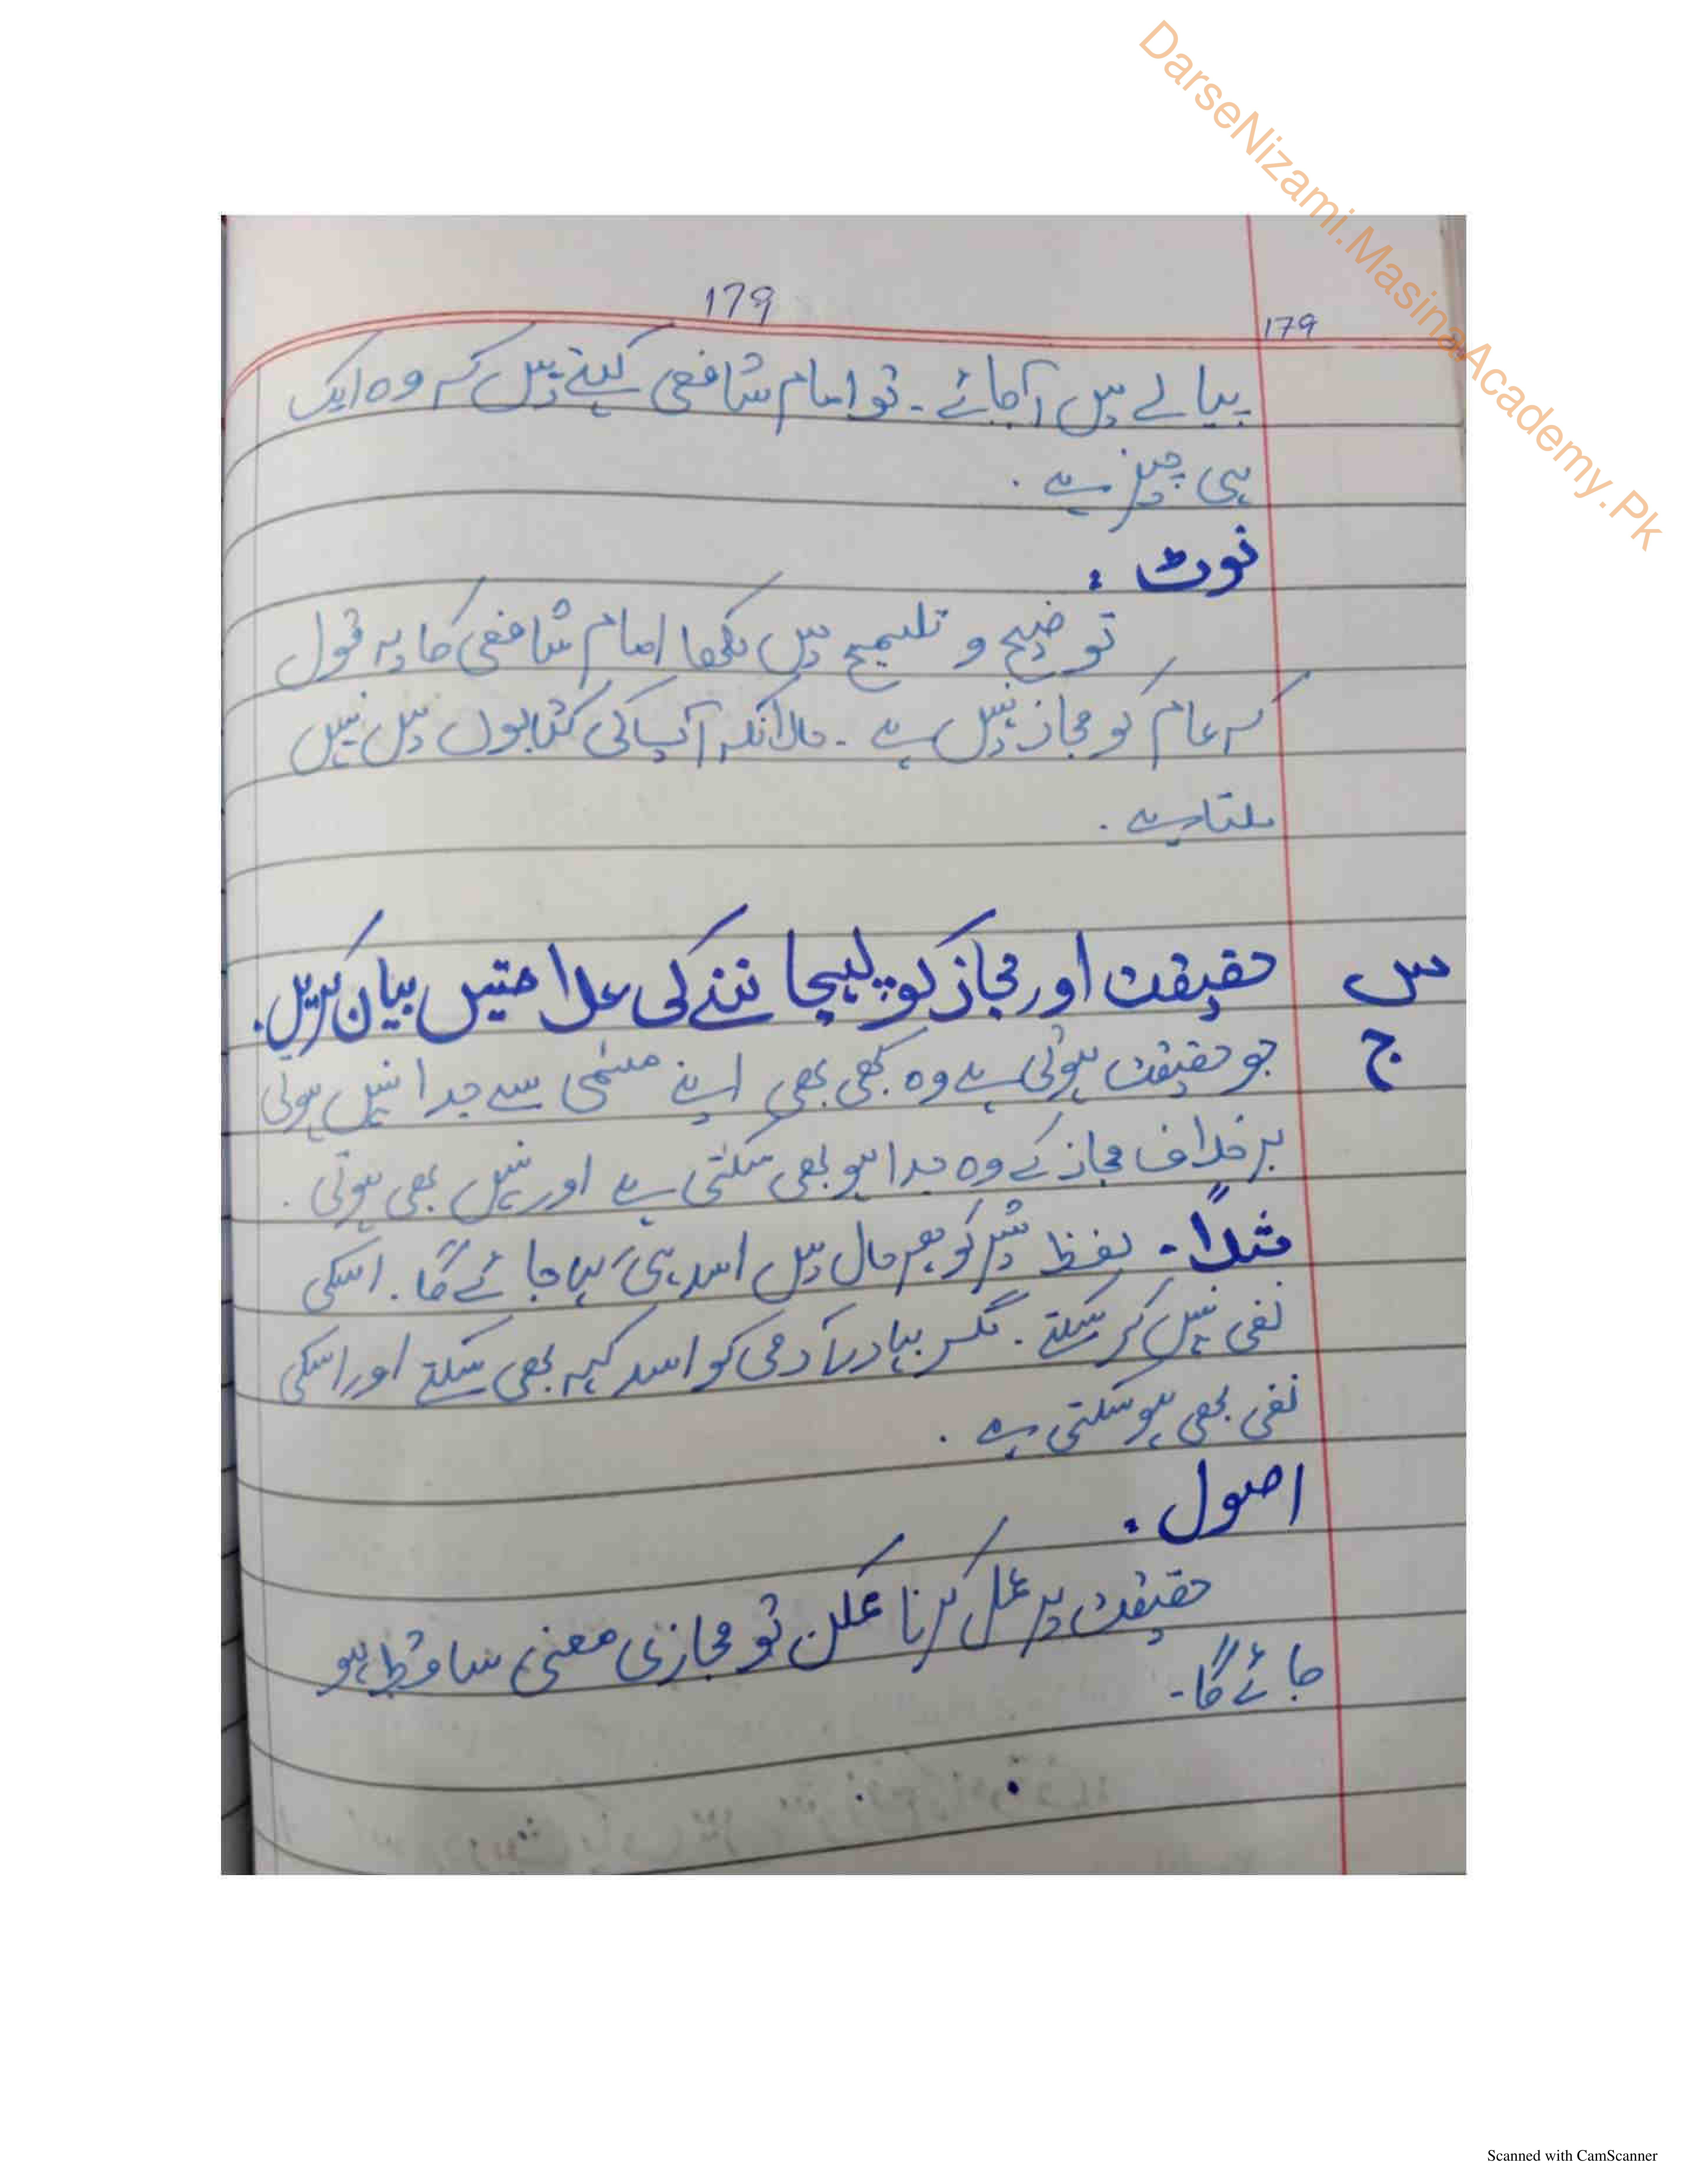 DarseNizami.MasinaAcademy.Pk
179
179
پیالے میں آجائے۔ تو امام شافعی کہتے ہیں کہ وہ ایک
ہی چیز ہے۔
نوٹ:
توضیح و تلمیح میں لکھا امام شافعی کا یہ قول
کہ عام کو مجاز نہیں ہے۔ حالانکہ آپ کی کتابوں میں نہیں
ملتا ہے۔
س حقیقت اور مجاز کو پہچاننے کی علامتیں بیان کریں۔
ج جو حقیقت ہوتی ہے وہ کبھی بھی اپنے مسمّی سے جدا نہیں ہوتی
برخلاف مجاز کے وہ جدا ہو بھی سکتی ہے اور نہیں بھی ہوتی۔
مثلاً۔ لفظ شیر کو بہرحال میں اسد ہی کہا جائے گا۔ اسکی
نفی نہیں کر سکتے۔ مگر بہادر آدمی کو اسد کہہ بھی سکتے اور اسکی
نفی بھی ہو سکتی ہے۔
اصول:
حقیقت پر عمل کرنا ممکن تو مجازی معنی ساقط ہو
جائے گا۔
Scanned with CamScanner